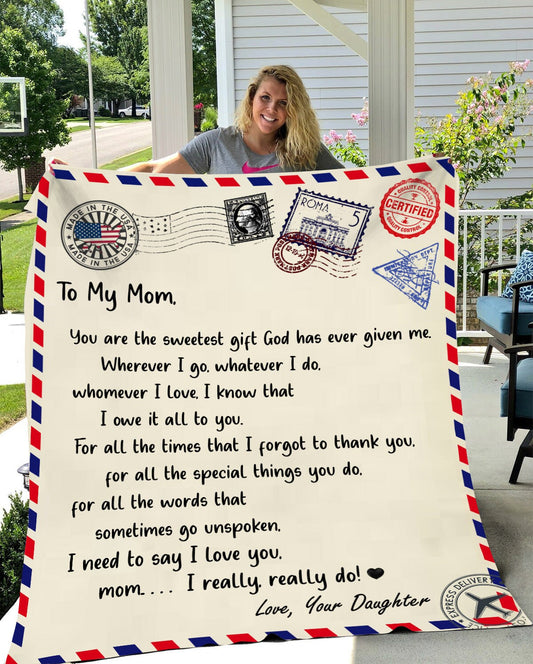 MADE IN THE USA
MADE IN THE USA
ROMA
5
QUALITY CONTROL
CERTIFIED
QUALITY CONTROL
To My Mom,
You are the sweetest gift God has ever given me.
Wherever I go, whatever I do,
whomever I love, I know that
I owe it all to you.
For all the times that I forgot to thank you,
for all the special things you do,
for all the words that
sometimes go unspoken,
I need to say I love you,
mom.... I really, really do!
Love, Your Daughter
EXPRESS DELIVERY